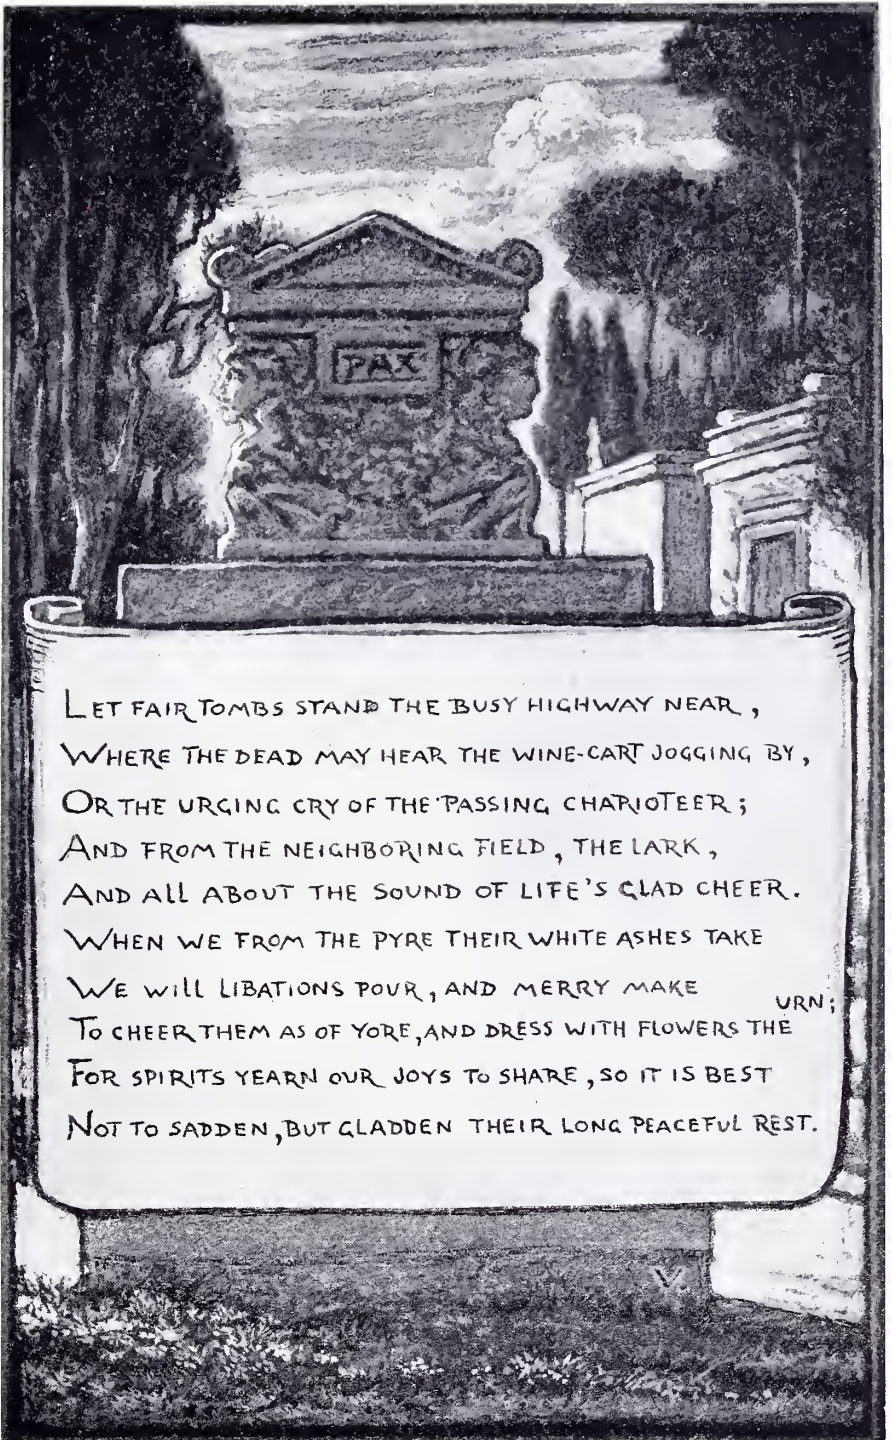 PAX
LET FAIR TOMBS STAND THE BUSY HIGHWAY NEAR,
WHERE THE DEAD MAY HEAR THE WINE-CART JOGGING BY,
OR THE URGING CRY OF THE PASSING CHARIOTEER;
AND FROM THE NEIGHBORING FIELD, THE LARK,
AND ALL ABOUT THE SOUND OF LIFE'S GLAD CHEER.
WHEN WE FROM THE PYRE THEIR WHITE ASHES TAKE
WE WILL LIBATIONS POUR, AND MERRY MAKE
TO CHEER THEM AS OF YORE, AND DRESS WITH FLOWERS THE URN;
FOR SPIRITS YEARN OUR JOYS TO SHARE, SO IT IS BEST
NOT TO SADDEN, BUT GLADDEN THEIR LONG PEACEFUL REST.
V